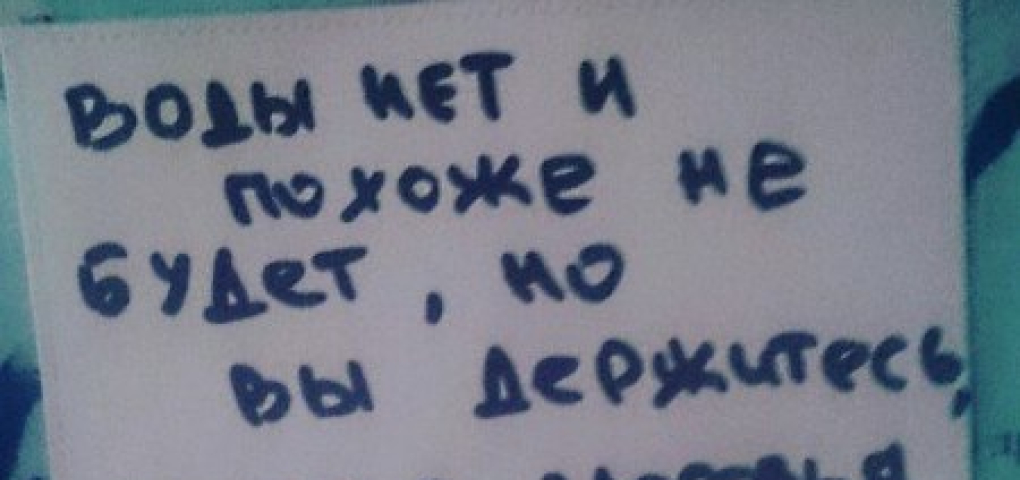 ВОДЫ НЕТ И
похоже не
будет, но
вы держитесь,